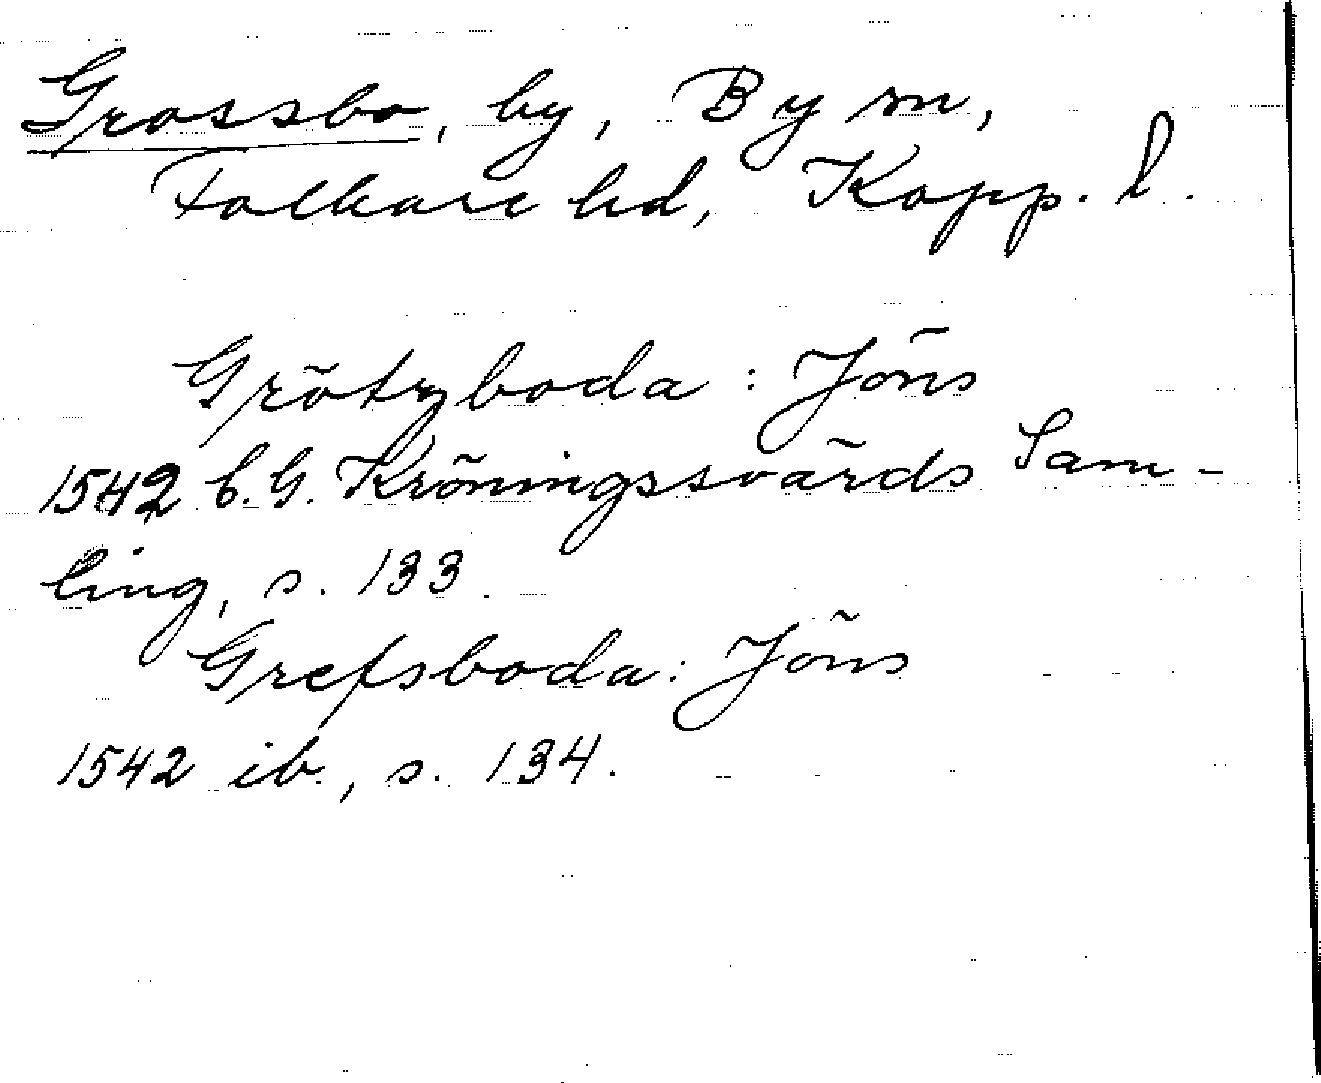 Grossbo, by, By sn,
Folkare hd, Kopp. l.
Grötzboda : Jöns
1542 C.G. Kröningssvärds Sam-
ling, s. 133.
Grefsboda : Jöns
1542 ib., s. 134.